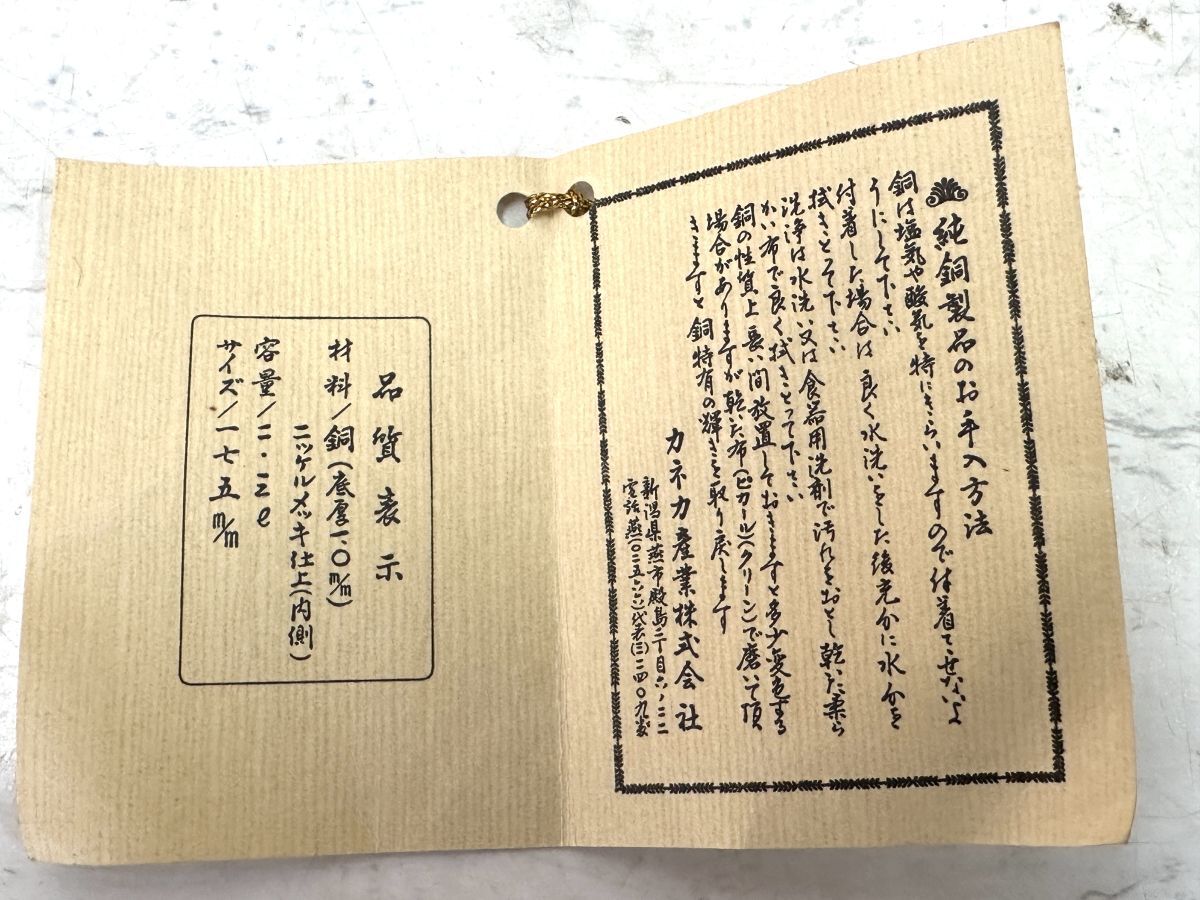 純銅製品のお手入方法
銅は塩気や酸気を特にきらいますので付着てせないよ
うにして下さい
付着した場合は良く水洗いをした後充分に水分を
拭きとって下さい
洗浄は水洗い又は食器用洗剤で汚れをおとし乾いた柔ら
かい布で良く拭きとって下さい
銅の性質上長い間放置しておきますと多少変色する
場合がありますが乾いた布(ピカール)(クリーン)で磨いて頂
きますと銅特有の輝きを取り戻します
カネカ産業株式会社
新潟県燕市殿島二丁目六ノ二二
電話燕(〇二五六六)代表(三)二四〇九番
品質表示
材料/銅(底厚一.〇m/m)
ニッケルメッキ仕上(内側)
容量/二・三ℓ
サイズ/一七五m/m